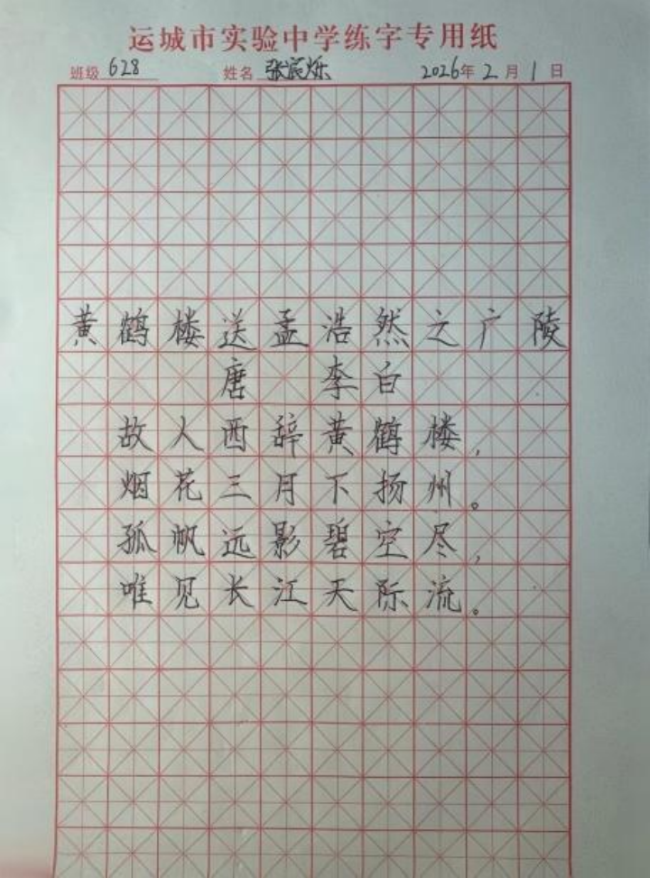 运城市实验中学练字专用纸
班级 628 姓名 张宸烁 2026年 2月 1日
黄鹤楼送孟浩然之广陵
唐 李白
故人西辞黄鹤楼,
烟花三月下扬州。
孤帆远影碧空尽,
唯见长江天际流。